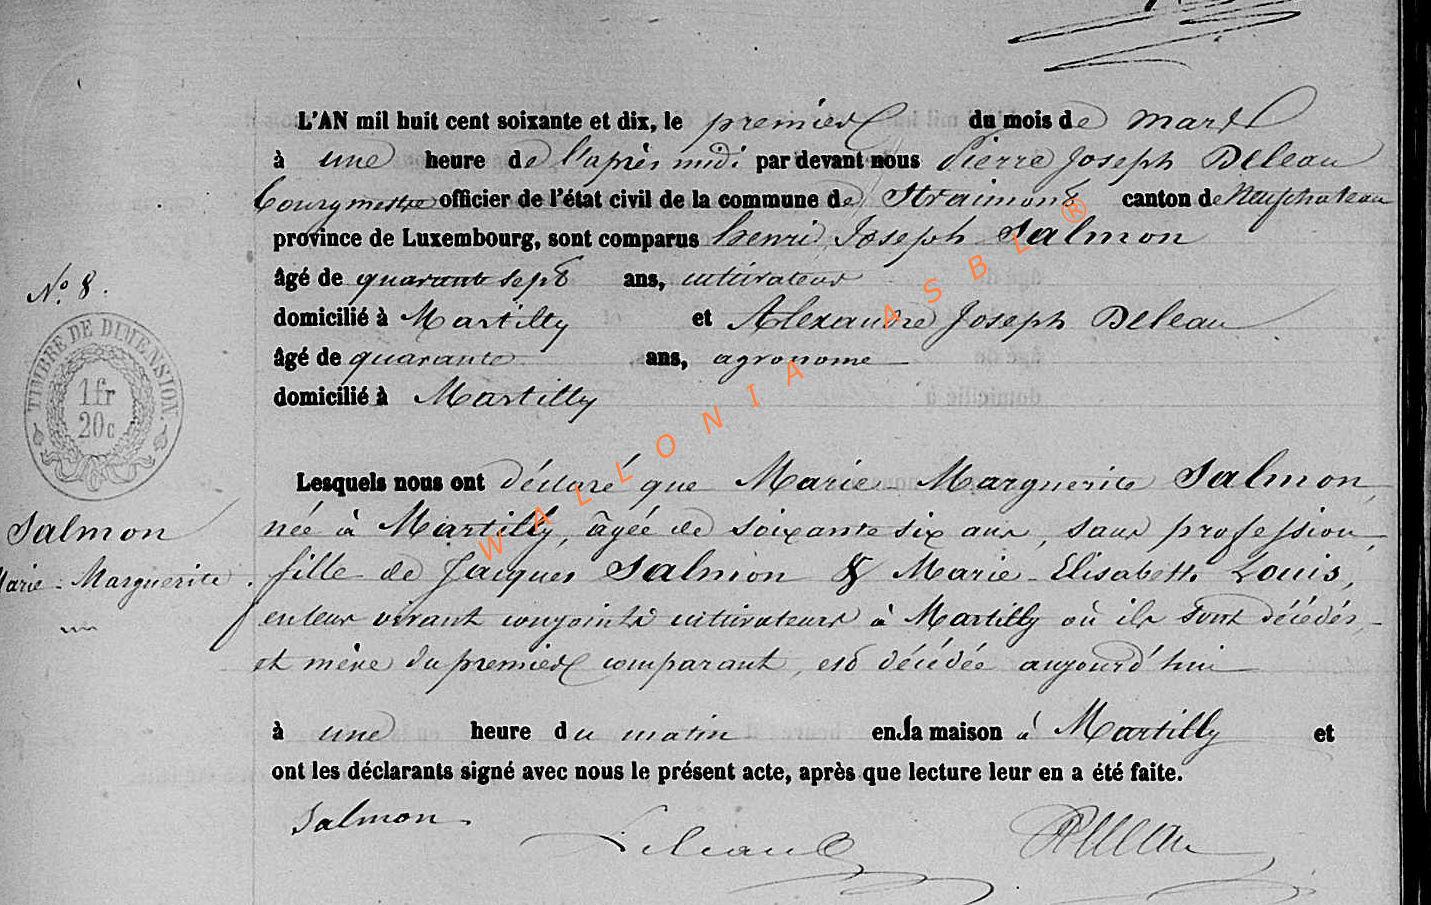 L'AN mil huit cent soixante et dix, le premier du mois de mars
à une heure de l'après midi par devant nous Pierre Joseph Deleau
bourgmestre officier de l'état civil de la commune de Straimont canton de Neufchateau
province de Luxembourg, sont comparus henri Joseph Salmon
N.º 8.
âgé de quarante sept ans, cultivateur
domicilié à Martilly et Alexandre Joseph Deleau
âgé de quarante ans, agronome
domicilié à Martilly
TIMBRE DE DIMENSION.
1fr
20c
WALLONIA ASBL ®
Lesquels nous ont déclaré que Marie-Marguerite Salmon,
née à Martilly, âgée de soixante six ans, sans profession,
fille de Jacques Salmon & Marie-Elisabeth Louis,
en leur vivant conjoints cultivateurs à Martilly où ils sont décédés,
et mère du premier comparant, est décédée aujourd'hui
Salmon
Marie-Marguerite.
à une heure du matin en la maison à Martilly et
ont les déclarants signé avec nous le présent acte, après que lecture leur en a été faite.
Salmon. Deleau Deleau